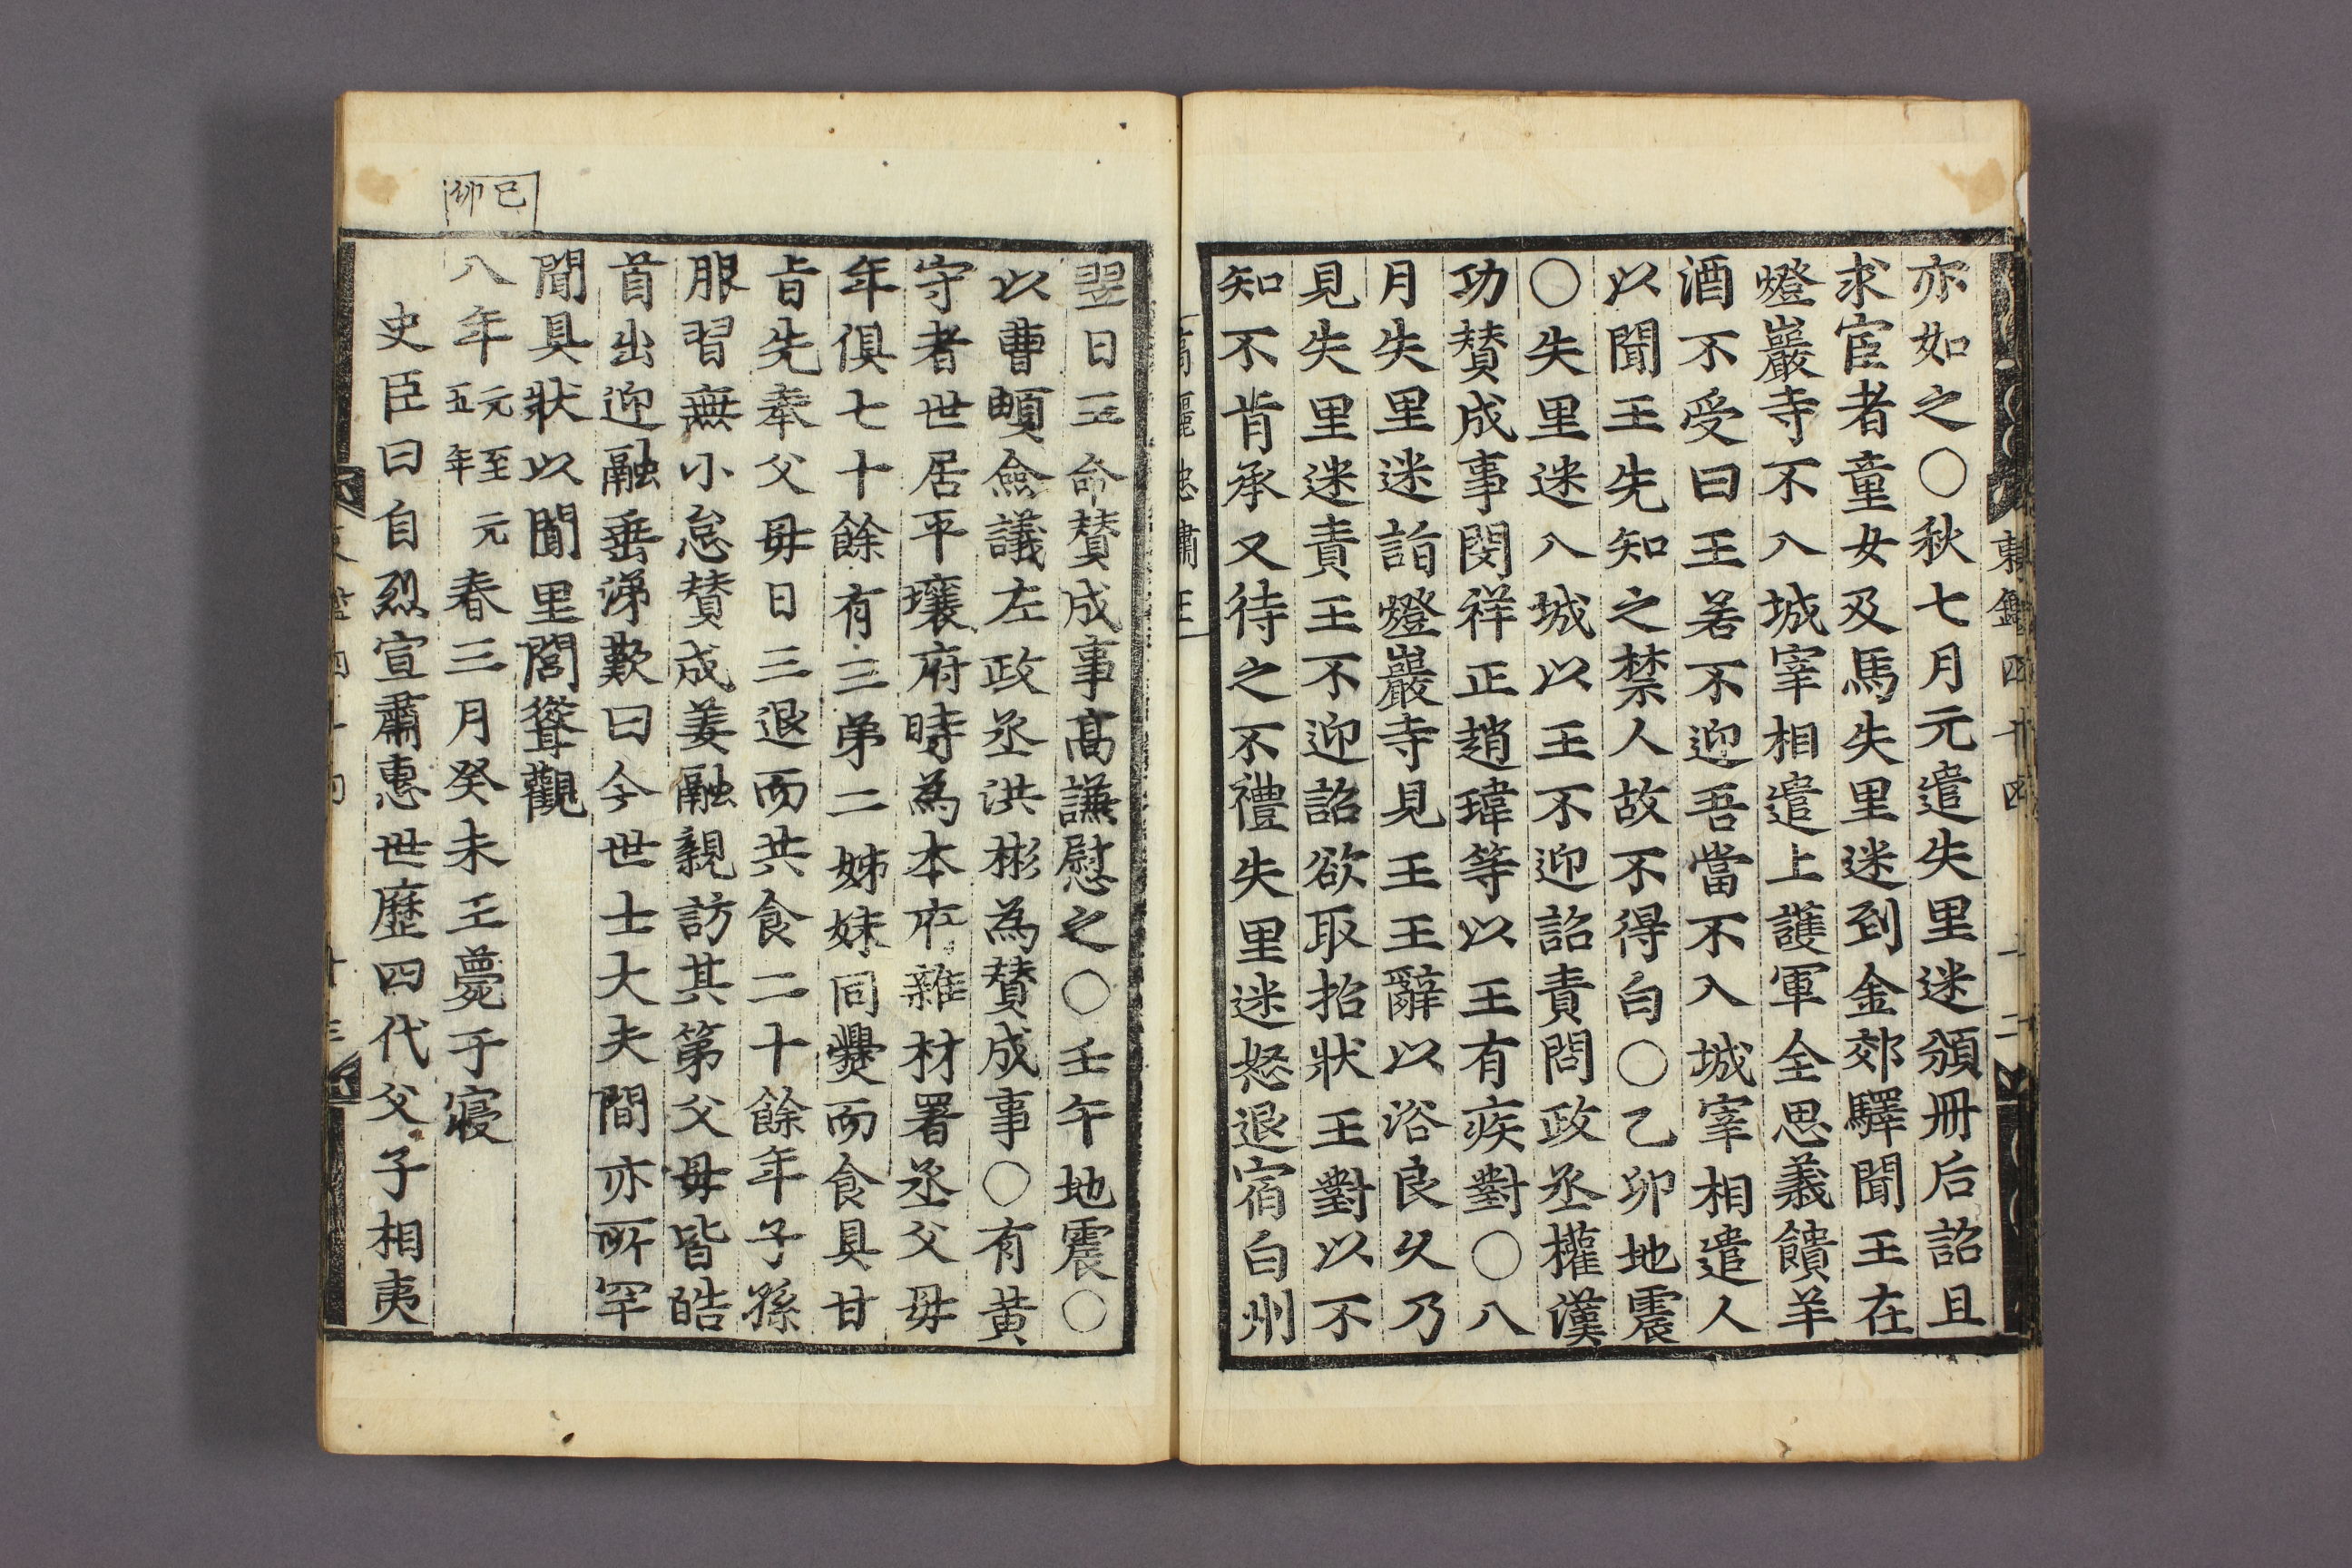 東鑑四十四
十二
亦如之○秋七月元遣失里迷頒冊后詔且
求宦者童女及馬失里迷到金郊驛聞王在
燈巖寺不入城宰相遣上護軍全思義饋羊
酒不受曰王若不迎吾當不入城宰相遣人
以聞王先知之禁人故不得白○乙卯地震
○失里迷入城以王不迎詔責問政丞權漢
功賛成事閔祥正趙瑋等以王有疾對○八
月失里迷詣燈巖寺見王王辭以浴良久乃
見失里迷責王不迎詔欲取招狀王對以不
知不肯承又待之不禮失里迷怒退宿白州
高麗忠肅王
翌日王命賛成事高謙慰之○壬午地震○
以曹頔僉議左政丞洪彬為賛成事○有黄
守者世居平壤府時為本府雜材署丞父母
年俱七十餘有三弟二姊妹同爨而食具甘
旨先奉父母日三退而共食二十餘年子孫
服習無小怠賛成姜融親訪其第父母皆皓
首出迎融垂涕歎曰今世士大夫間亦所罕
聞具狀以聞里閭聳觀
己卯
八年元至元五年春三月癸未王薨于寢
史臣曰自烈宣肅惠世歷四代父子相夷